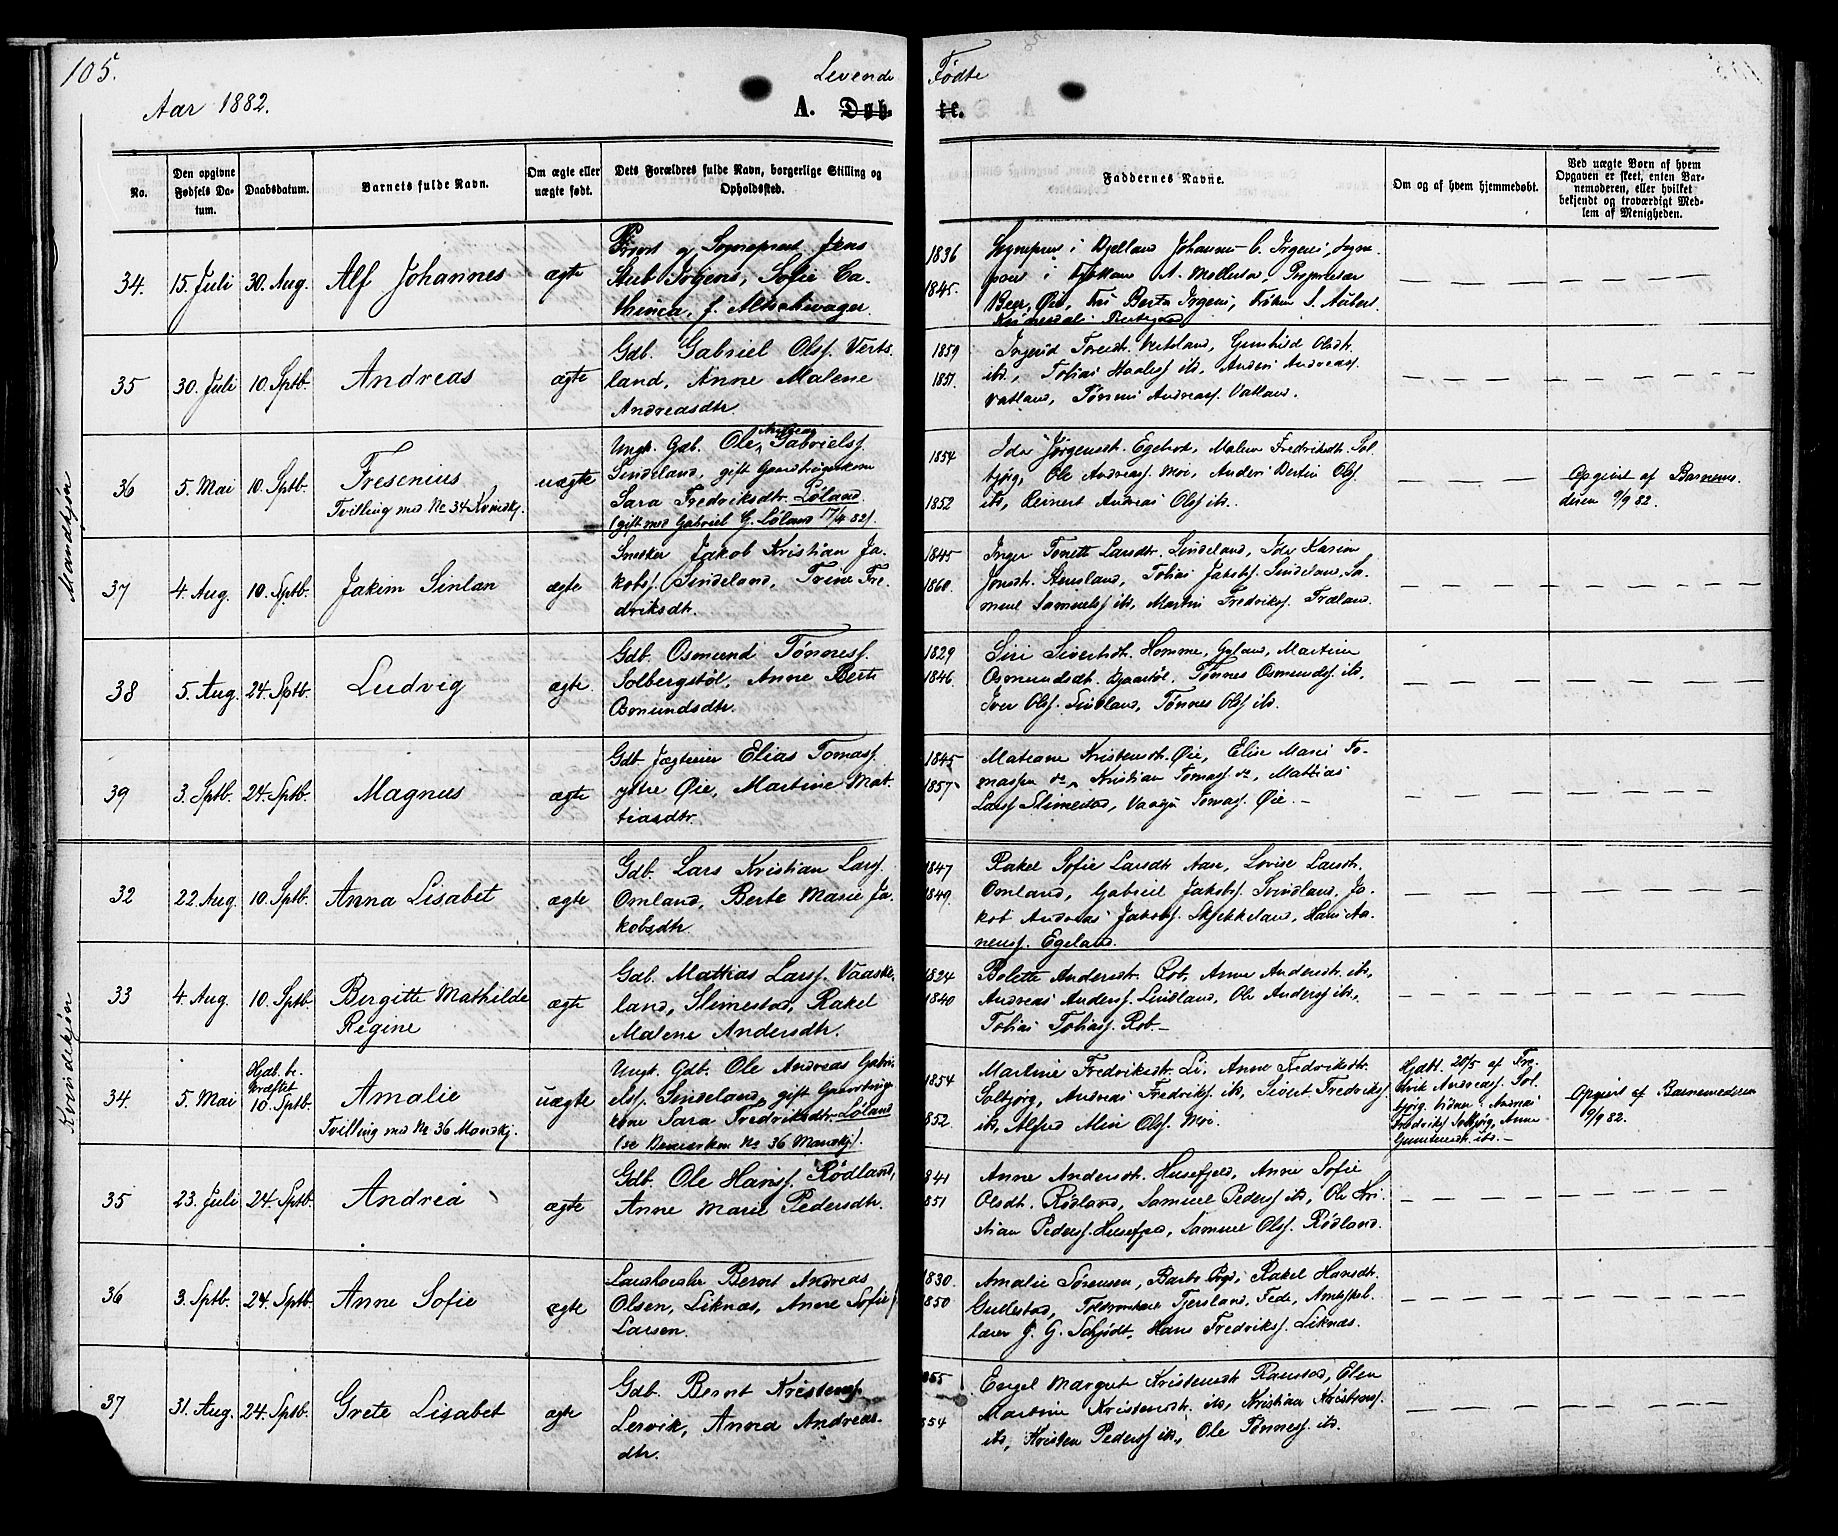 105.
Levende Fødte
Aar 1882.
A. Døbte.
No.
Den opgivne Fødsels Datum.
Daabsdatum.
Barnets fulde Navn.
Om ægte eller uægte født.
Dets Forældres fulde Navn, borgerlige Stilling og Opholdssted.
Faddernes Navne.
Om og af hvem hjemmedøbt.
Ved uægte Born af hvem Opgaven er skeet, enten Barnemoderen, eller hvilket bekjendt og troværdigt Medlem af Menigheden.
Mandkjøn
34. 15. Juli 30. Aug. Alf Johannes ægte
Provst og Sognepræst Jens
Stub Irgens, Sofie Ca-
thinca, f. Altschwager.
1836
1845.
Sognepræst i Bjelland Johannes C. Irgens, Sogne-
præst i
Øie, Frk Berta Irgens, Frøken S. Aubert
35 30. Juli 10. Sptb. Andreas ægte
Gdb. Gabriel Olsf. Verts-
land, Anne Malene
Andreasdtr.
1859
1851.
Ingerid Toresdt. Vertsland, Gunhild Olsdt.
ibs, Tobias ibs, Anders Andreasf.
Vatland, Tønnes Andreasf. Vatland.
36 5. Mai 10. Sptb. Fresenius uægte
Tvilling med No 34 Kvindkj.
Ungk. Gdb. Ole Andreas Gabrielsf.
Sindeland, gift Gaardbrugerkone
Sara Fredriksdtr. Løland.
(gift med Gabriel G. Løland 17/4 82).
1854
1852
Ida Jørgensdt. Egebost, Malene Fredriksdt. Sol-
bjørg, Ole Andreasf. Moi, Anders Bertin Olsf.
ibs, Reinert Andreas Olsf. ibs.
Opgivet af Barnemo-
deren 9/9 82.
37 4. Aug. 10. Sptb. Jakim Sinlan ægte
Snedker Jakob Kristian Ja-
kobsf. Sindeland, Trine Fre-
driksdtr.
1845
1860.
Inger Tonette Larsdt. Sindeland, Ida Karine
Jonsdt. Stensland, Tobias Jakobsf. Sindeland, Sa-
muel Samuelsf ibs, Martin Fredriksf. Træland.
38 5. Aug. 24. Sptb. Ludvig ægte.
Gdb. Osmund Tønnesf.
Solbergstøl, Anne Berte
Osmundsdtr.
1829
1846
Siri Sivertsdt. Homme, Gyland, Martine
Osmundsdt. Tønnes Osmundsf. ibs,
Iver Olsf. Sindland, Tønnes Olsf ibs.
39 3. Sptb. 24. Sptb. Magnus ægte
Gdb. Jægteier Elias Tomasf.
ytre Øie, Martine Mat-
tiasdtr.
1845
1857.
Mateane Kristensdt. Øie, Elise Marie To-
masfen Kristian Tomasf. Mattias
Larsf Slimestad, Vaagn Tomasf. Øie.
Kvindekjøn
32 22. Aug. 10. Sptb. Anna Lisabet ægte
Gdb. Lars Kristian Larsf.
Omland, Berte Marie Ja-
kobsdtr.
1847
1849.
Rakel Sofie Larsdtr. Aase, Lovise Larsdt.
Omland, Gabriel Jakobsf. Svindland, Ja-
kob Andreas Jakobsf. Skjekkeland, Hans Aa-
nensf. Egeland.
33 4 Aug. 10. Sptb. Bergitte Mathilde Regine ægte
Gdb. Mattias Larsf. Vaaske-
land, Slimestad, Rakel
Malene Andersdtr.
1824
1840
Bolette Andersdt. Rob, Anne Andersdt. ibs,
Andreas Andersf. Lindland, Ole Andersf ibs,
Tobias Tobiasf. Rob.
34. 5. Mai Hjdb. be-kræftet 10. Sptb. Amalie uægte
Tvilling med No 36 Mandkj.
Ungk. Gdb. Ole Andreas Gabri-
elsf. Sindeland, gift Gaardbruger-
kone Sara Fredriksdtr. Løland
(se Bemærkn No 36 Mandkj.).
1854
1852.
Martine Fredriksdt. Li, Anne Fredriksdtr.
Solbjørg, Andreas Fredriksf. ibs, Sivert Fredriksf.
ibs, Alfred Alin Olsf. Moi.
Hjdbt. 20/5 af Fre-
drik Andreasf. Sol-
bjørg. Vidner: Andreas
Fredriksf Solbjørg, Anne
ibs.
Opgivet af Barnemoderen
10/9 82.
35 23. Juli 24. Sptb. Andrea ægte
Gdb. Ole Hansf. Rødland,
Anne Marie Pedersdtr.
1841
1851
Anne Andersdt. Husefjeld, Anne Sofie
Olsdt. Rødland, Samuel Pedersf ibs, Ole Kri-
stian Pedersf. Husefjeld, Samuel Olsf. Rødland.
36 3. Sptb. 24. Sptb. Anne Sofie ægte
Bernt Andreas
Olsen, Liknæs, Anne Sofie f.
Larsen.
1830.
1850
Amalie Sørensen, Rakel Hansdt.
Gullestad, Tjersland, Fede, Amtsskole-
lærer J. G. Schjødt, Hans Fredriksf. Liknæs.
37 31. Aug. 24. Sptb. Grete Lisabet ægte
Gdb. Bernt Kristensf.
Lervik, Anna Andreas-
dtr.
1855
1854
Engel Margrete Kristensdt Raustad, Elen
Martine Kristensdt. ibs, Kristian Kristensf.
ibs, Kristen Pedersf ibs, Ole Tønnesf. ibs.